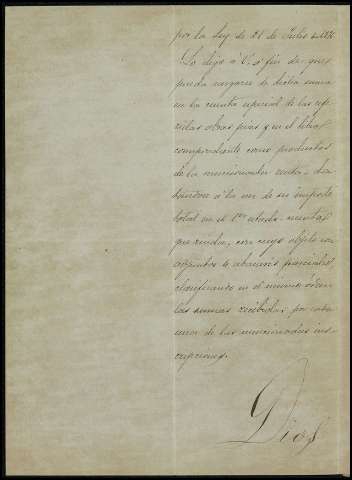 por la Ley de 21 de Julio de 1876
Lo digo á V. á fin de que
pueda cargarse de dicha suma
en la cuenta especial de las refe
ridas obras pias y en el libro
correspondiente como productos
de la mencionada renta,
á la vez de su importe
total en el 1er estado mensual
que rinda, con cuyo objeto
los abonarés parciales,
clasificando en el mismo
las sumas recibidas por cada
una de las mencionadas ins
cripciones.
Dios